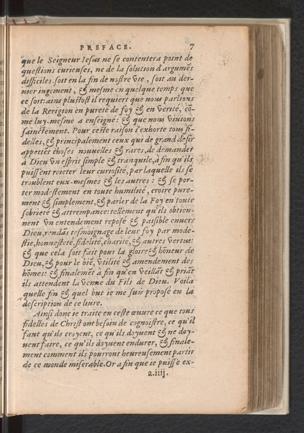 PREFACE. 7
que le Seigneur Iesus ne se contentera point de
questions curieuses, ne de la solution d'argumẽs
difficiles: soit en la fin de nostre vie, soit au der-
nier iugement, & mesme en quelque temps que
ce soit: ains plustost il requiert que nous parlions
de la Religion en pureté de foy & en verité, cõ-
me luy-mesme a enseigné: & que nous viuions
sainctement. Pour ceste raison i'exhorte tous fi-
delles, & principalement ceux qui de grand desir
appetent choses nouuelles & rares, de demander
à Dieu vn esprit simple & tranquile, à fin qu'ils
puissent reietter leur curiosité, par laquelle ils se
troublent eux-mesmes & les autres: & se por-
ter modestement en toute humilité, croire pure-
ment & simplement, & parler de la Foy en toute
sobrieté & attrempance: tellement qu'ils obtien-
nent vn entendement reposé & paisible enuers
Dieu, rendãs tesmoignage de leur foy par mode-
stie, honnesteté, fidelité, charité, & autres vertus:
& que cela soit fait pour la gloire & hõneur de
Dieu, & pour le biẽ, vtilité & amendement des
hõmes: & finalemẽt à fin qu'en veillãt & priãt
ils attendent la venue du Fils de Dieu. Voila
quelle fin & quel but ie me suis proposé en la
description de ce liure.
Ainsi donc ie traite en ceste œuure ce que tous
fidelles de Christ ont besoin de cognoistre, ce qu'il
faut qu'ils croyent, ce qu'ils doyuent & ne doy-
uent faire, ce qu'ils doyuent endurer, & finale-
ment comment ils pourront heureusement partir
de ce monde miserable. Or a fin que ie puisse ex-
2.iiij.